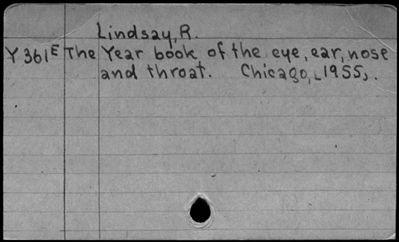 Lindsay, R.
Y 361E The Year book of the eye, ear, nose
and throat. Chicago, [1955].